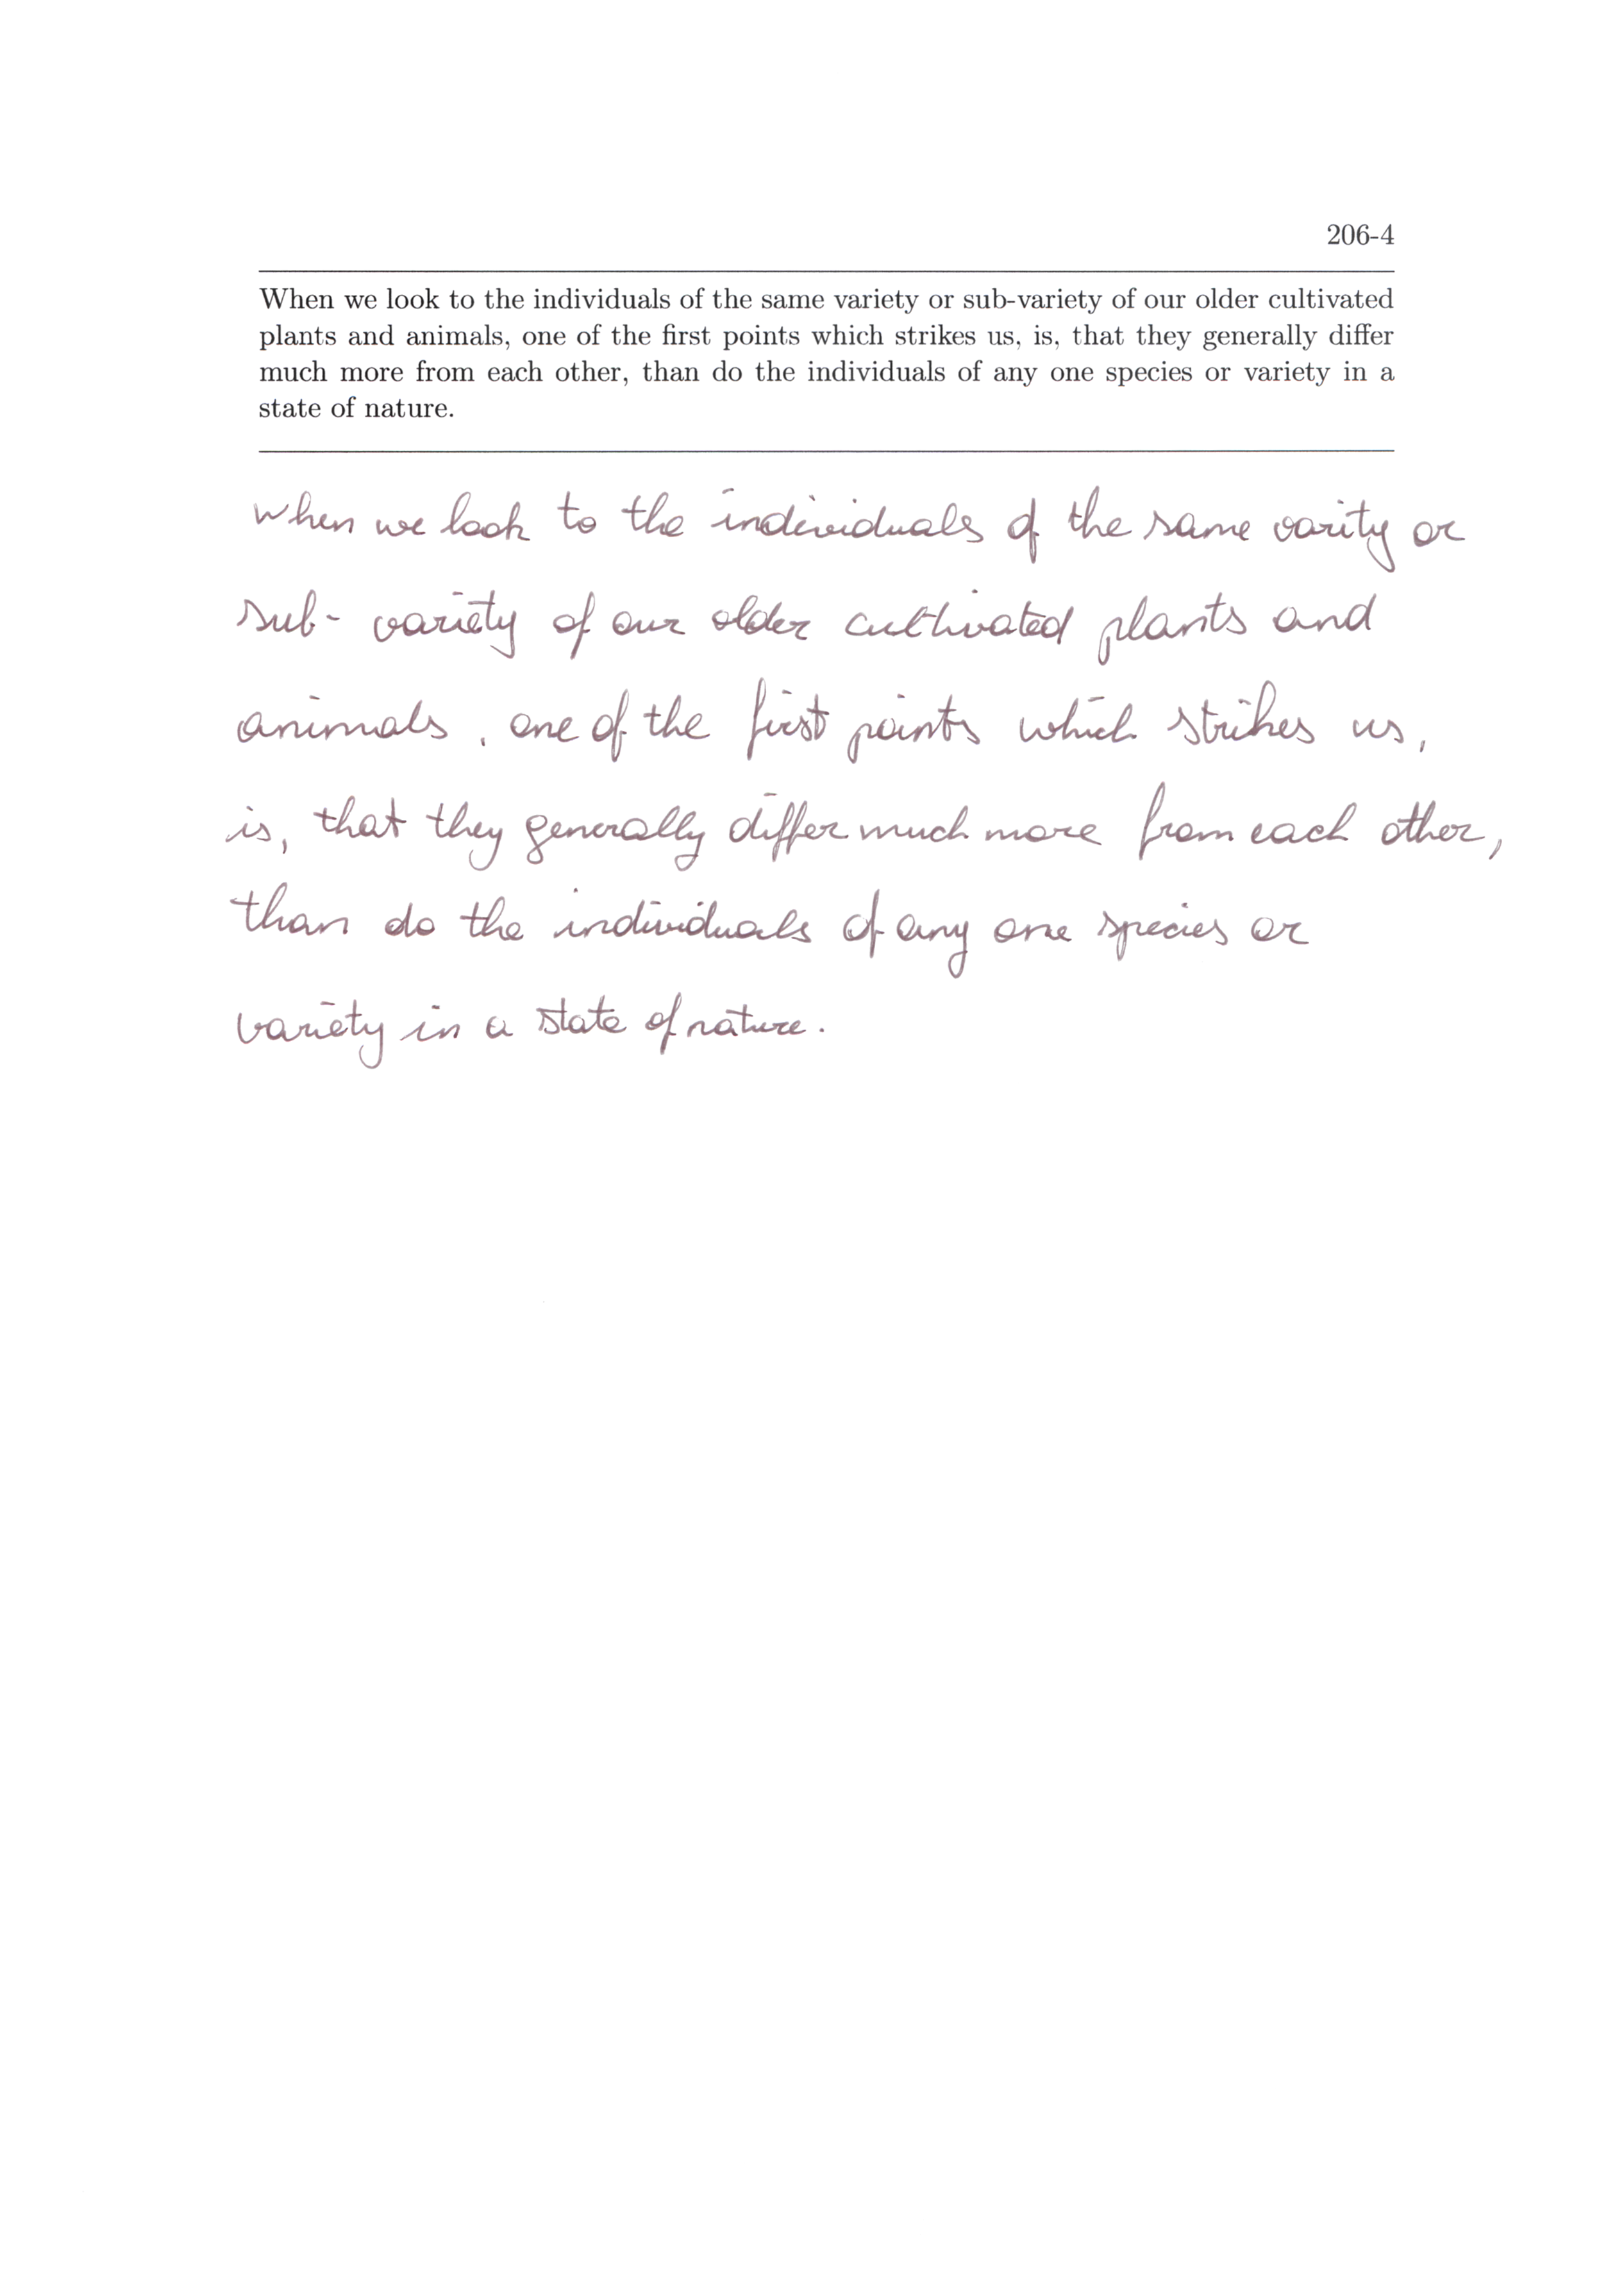 206-4
When we look to the individuals of the same variety or sub-variety of our older cultivated
plants and animals, one of the first points which strikes us, is, that they generally differ
much more from each other, than do the individuals of any one species or variety in a
state of nature.
When we look to the individuals of the same varity or
sub- variety of our older cultivated plants and
animals, one of the first points which strikes us,
is, that they generally differ much more from each other,
than do the individuals of any one species or
variety in a state of nature.